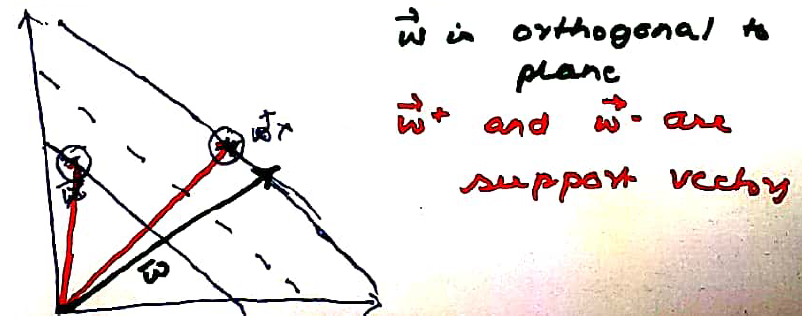 w⃗ is orthogonal to
plane
w⃗+ and w⃗- are
support vectors
w⃗+
w⃗-
w⃗